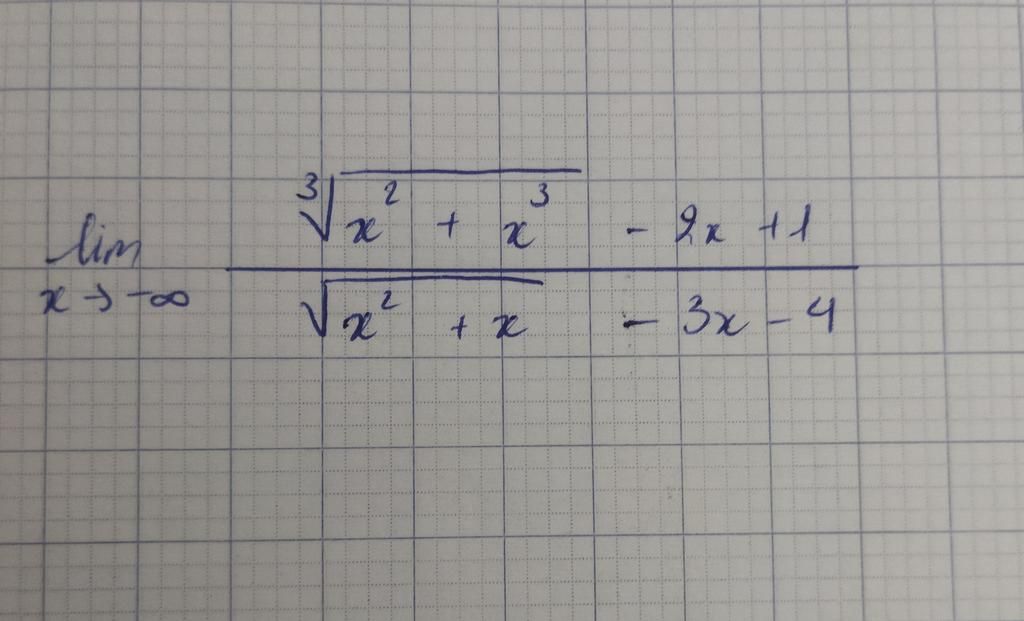 lim x→-∞ (∛(x² + x³) - 2x + 1) / (√(x² + x) - 3x - 4)